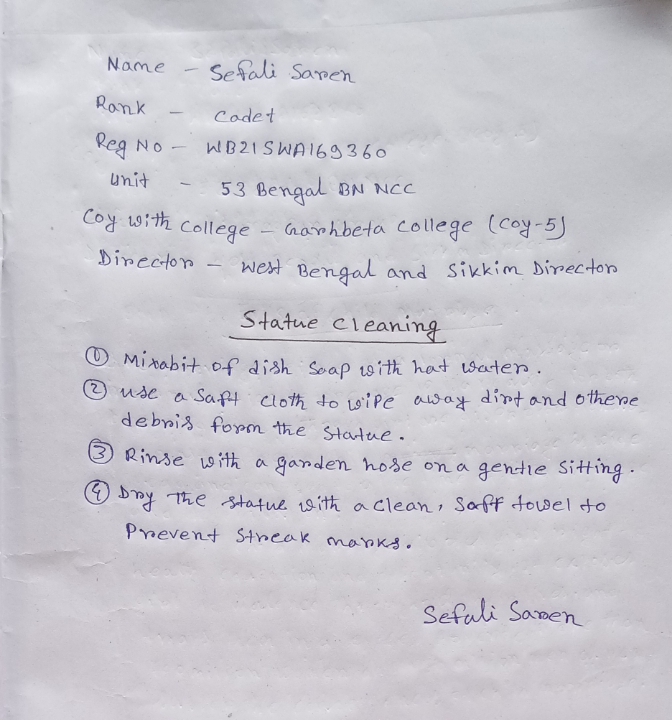 Name - Sefali Saren
Rank - Cadet
Reg No - WB21SWA169360
Unit - 53 Bengal BN NCC
Coy with College - Garhbeta College (Coy-5)
Director - West Bengal and Sikkim Director
Statue Cleaning
① Mixabit of dish Soap with hat water.
② use a Saft cloth to wipe away dirt and othere
debris form the Statue.
③ Rinse with a garden hose on a gentle Sitting.
④ Dry The Statue with a clean, Saft towel to
Prevent Streak marks.
Sefali Saren